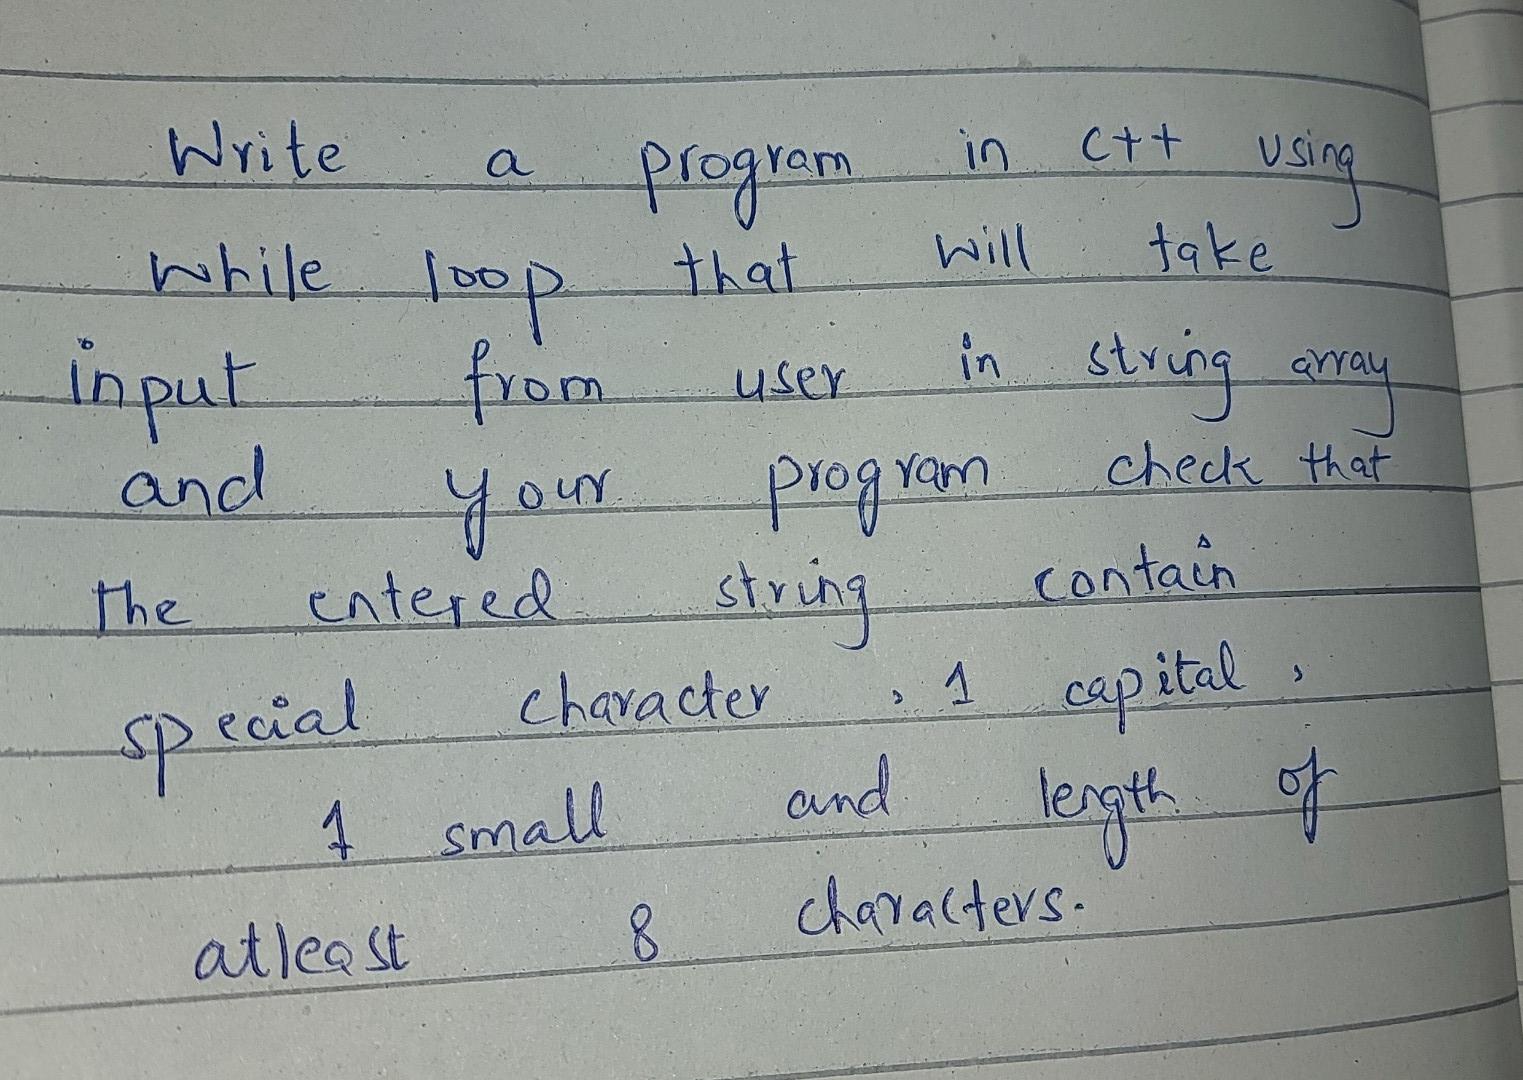 Write a program in C++ using
while loop that will take
input from user in string array
and your program check that
the entered string contain
special character, 1 capital,
1 small and length of
atleast 8 characters.